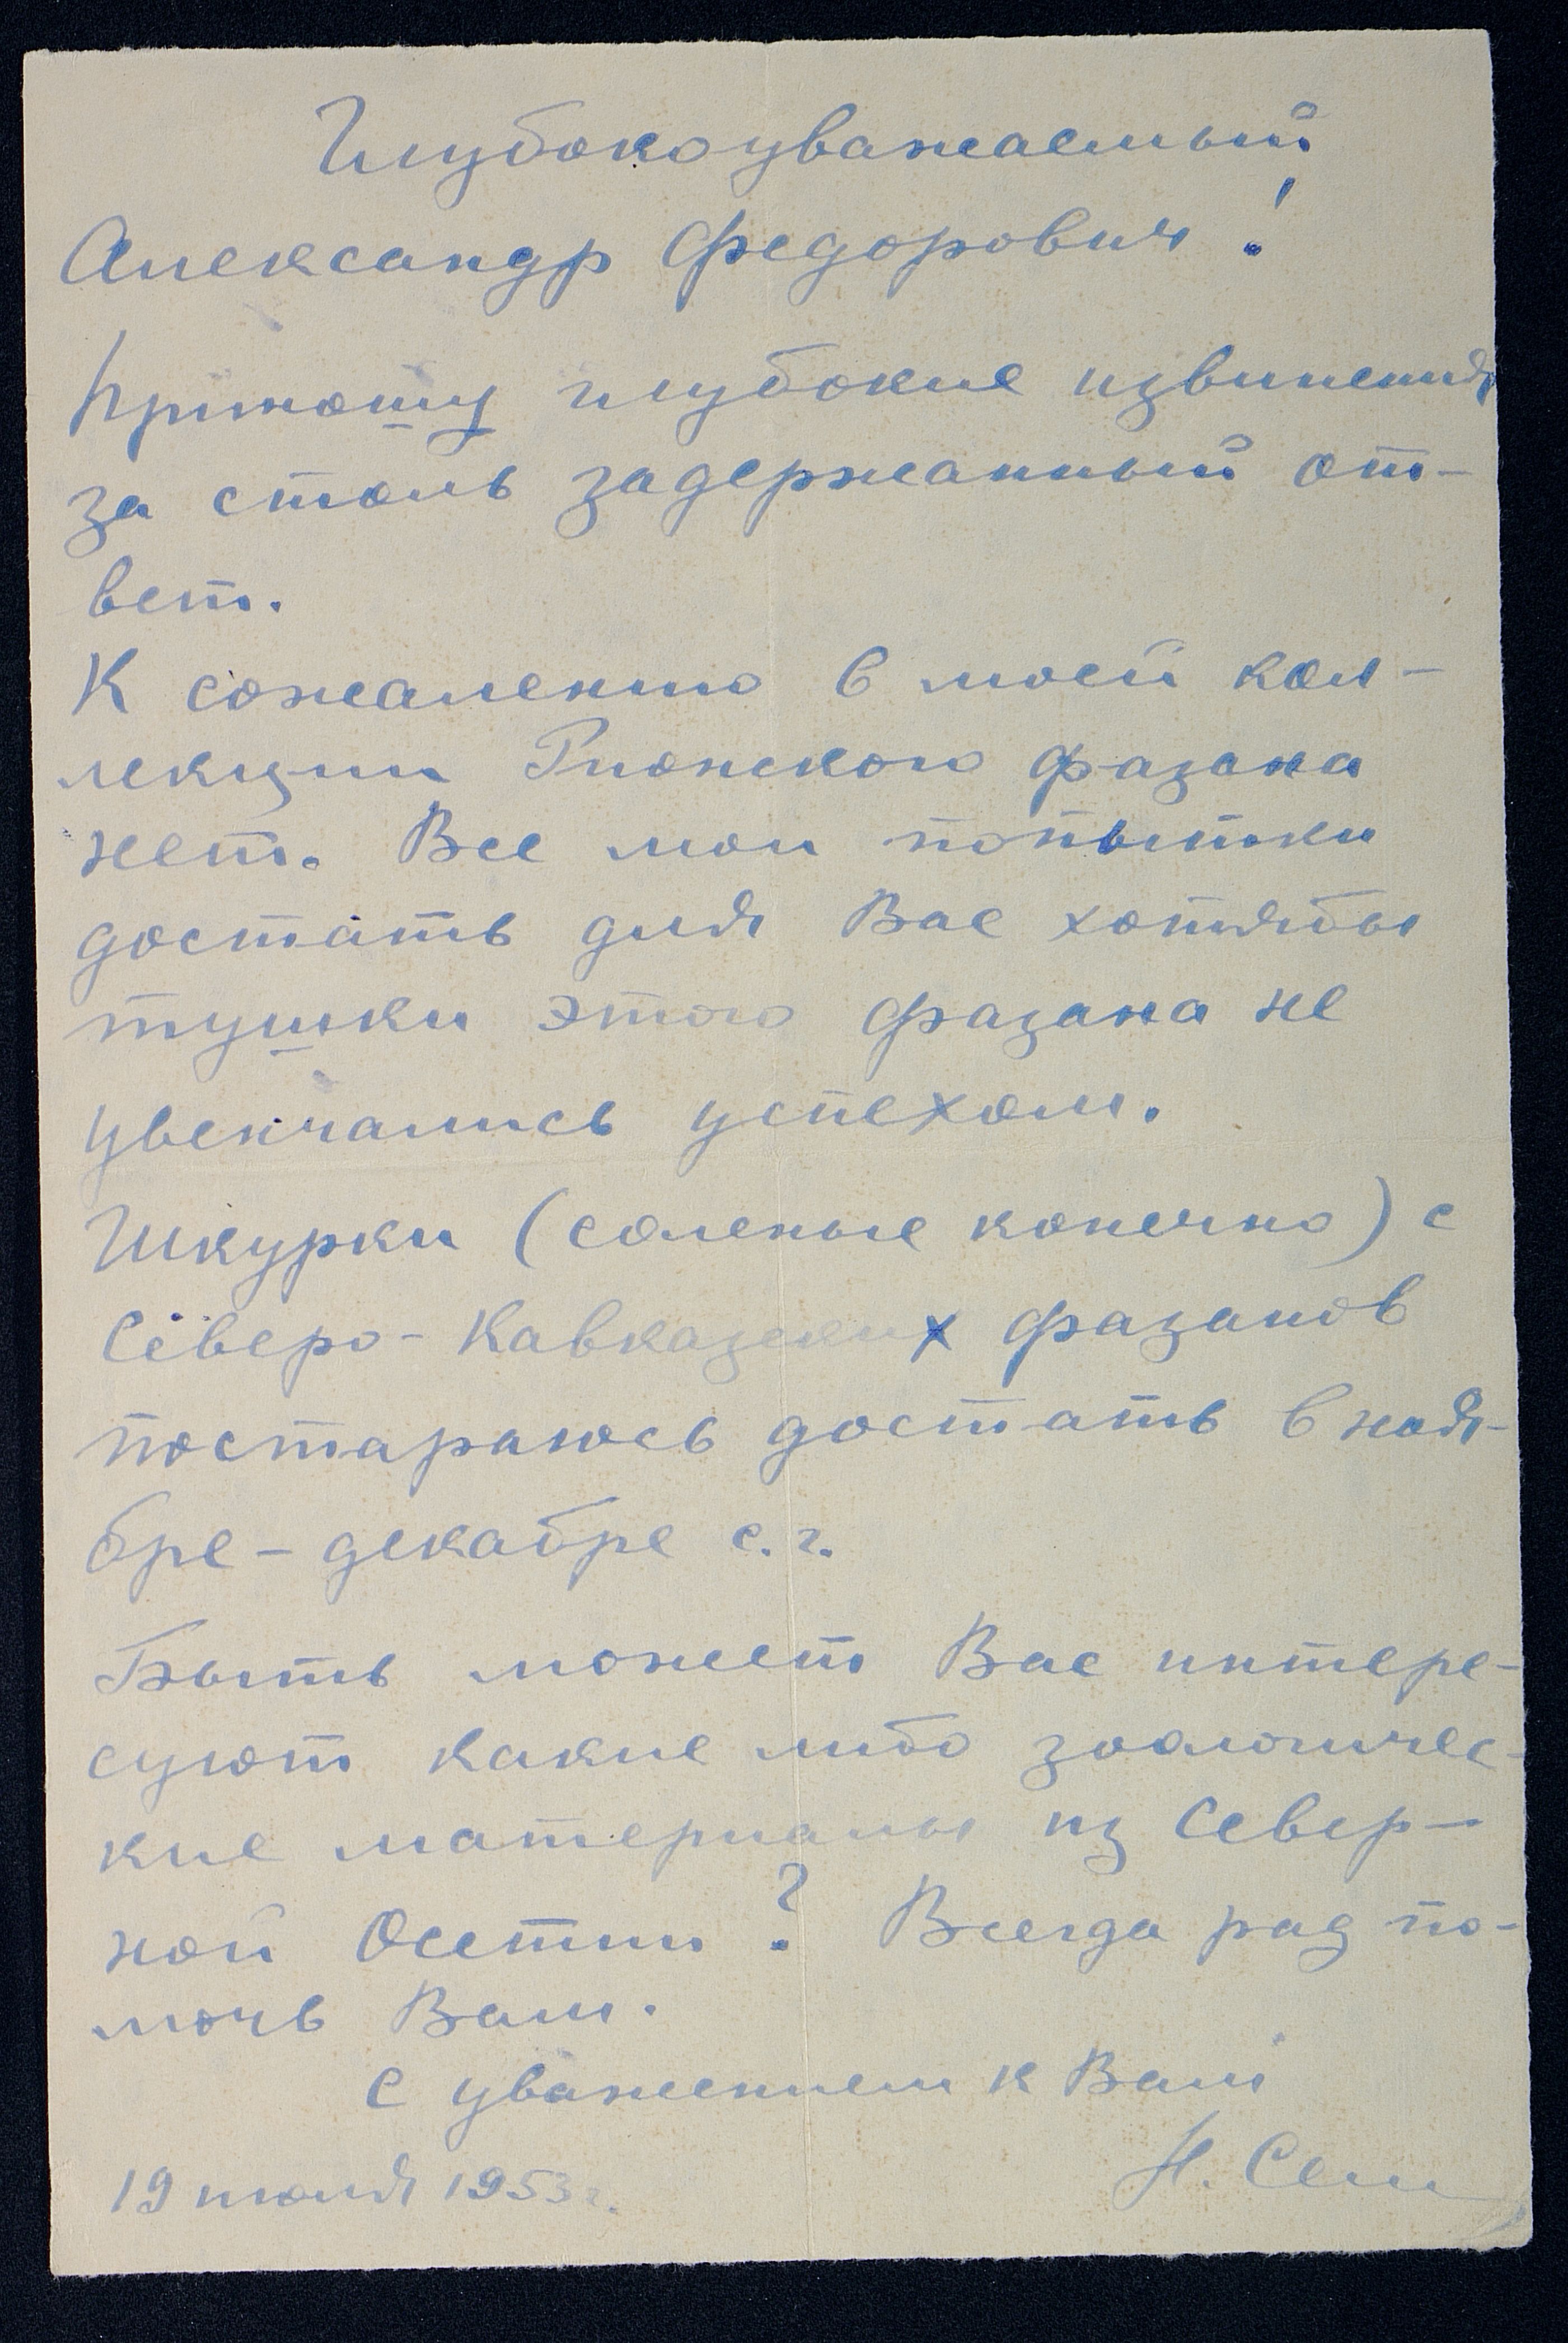 Глубокоуважаемый
Александр Федорович!
Приношу глубокие извинения
за столь задержанный от-
вет.
К сожалению в моей кол-
лекции Рионского фазана
нет. Все мои попытки
достать для Вас хотябы
тушки этого фазана не
увенчались успехом.
Шкурки (соленые конечно) с
Северо-Кавказских фазанов
постараюсь достать в нояб-
бре-декабре с.г.
Быть может Вас интере-
суют какие либо зоологичес-
кие материалы из Север-
ной Осетии? Всегда рад по-
мочь Вам.
С уважением к Вам
Н.
19 июля 1953 г.